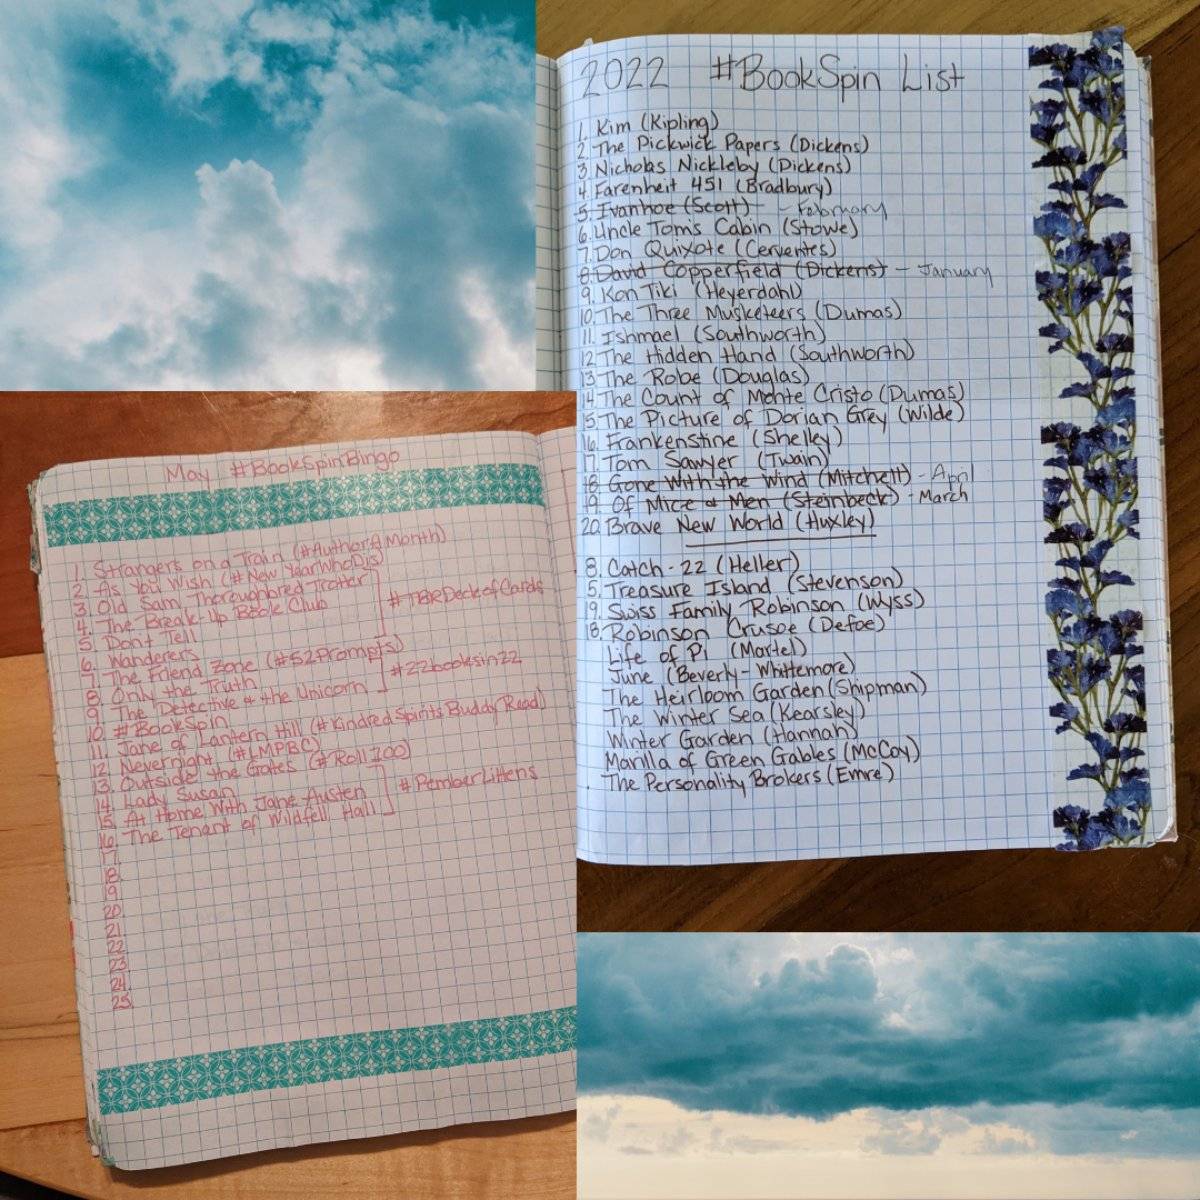 2022 #BookSpin List
1. Kim (Kipling)
2. The Pickwick Papers (Dickens)
3. Nicholas Nickleby (Dickens)
4. Farenheit 451 (Bradbury)
5. Ivanhoe (Scott) - February
6. Uncle Tom's Cabin (Stowe)
7. Don Quixote (Cerventes)
8. David Copperfield (Dickens) - January
9. Kon Tiki (Heyerdahl)
10. The Three Musketeers (Dumas)
11. Ishmael (Southworth)
12. The Hidden Hand (Southworth)
13. The Robe (Douglas)
14. The Count of Monte Cristo (Dumas)
15. The Picture of Dorian Grey (Wilde)
16. Frankenstine (Shelley)
17. Tom Sawyer (Twain)
18. Gone With the Wind (Mitchell) - April
19. Of Mice & Men (Steinbeck) - March
20. Brave New World (Huxley)
8. Catch-22 (Heller)
5. Treasure Island (Stevenson)
19. Swiss Family Robinson (Wyss)
18. Robinson Crusoe (Defoe)
Life of Pi (Martel)
June (Beverly-Whittemore)
The Heirloom Garden (Shipman)
The Winter Sea (Kearsley)
Winter Garden (Hannah)
Marilla of Green Gables (McCoy)
The Personality Brokers (Emre)
May #BookSpinBingo
1. Strangers on a Train (#AuthorAMonth)
2. As You Wish (#NewYearWhoDis)
3. Old Sam Thoroughbred Trotter
4. The Break-Up Book Club
#TBRDeckofCards
5. Don't Tell
6. Wanderers
7. The Friend Zone (#52Prompts)
8. Only the Truth
#22booksin22
9. The Detective & the Unicorn
10. #BookSpin
11. Jane of Lantern Hill (#KindredSpiritsBuddyRead)
12. Nevernight (#LMPBC)
13. Outside the Gates (#Roll100)
14. Lady Susan
15. At Home With Jane Austen
#PemberLittens
16. The Tenant of Wildfell Hall
17.
18.
19.
20.
21.
22.
23.
24.
25.